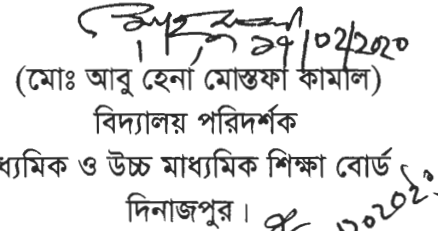 ১৭/০২/২০২০
(মোঃ আবু হেনা মোস্তফা কামাল)
বিদ্যালয় পরিদর্শক
ধ্যমিক ও উচ্চ মাধ্যমিক শিক্ষা বোর্ড
দিনাজপুর।